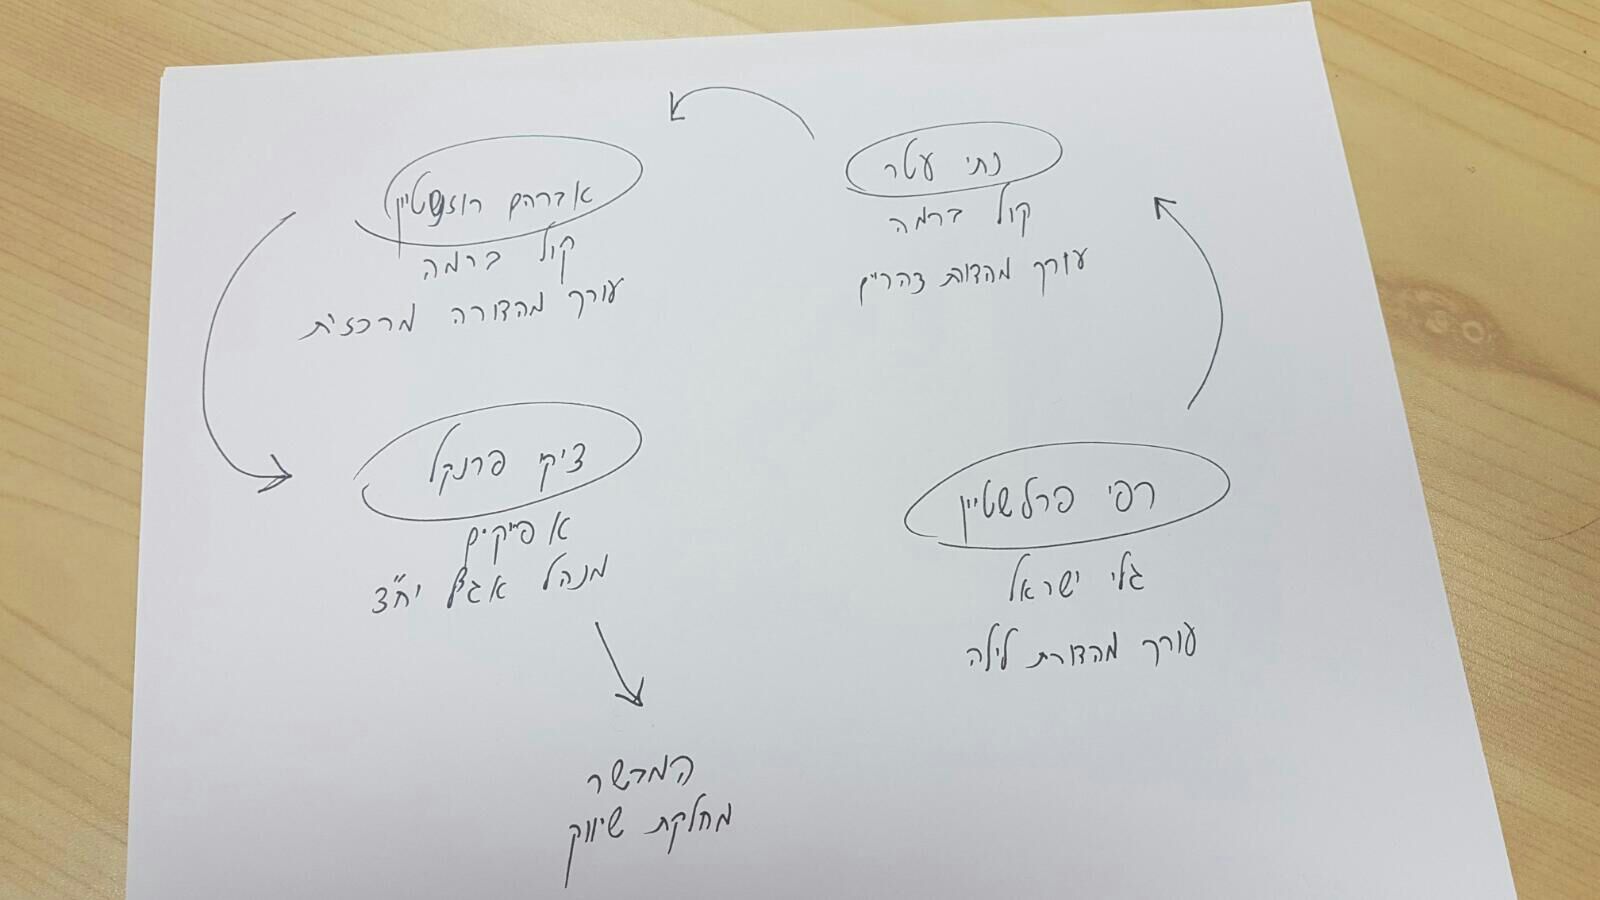 נתי עטר
קול ברמה
עורך מהדורת צהריים
אברהם רוזנשטיין
קול ברמה
עורך מהדורה מרכזית
ציקי פרנקל
אפיקים
מנהל אגף יח"צ
רפי פרלשטיין
גלי ישראל
עורך מהדורת לילה
המבשר
מחלקת שיווק